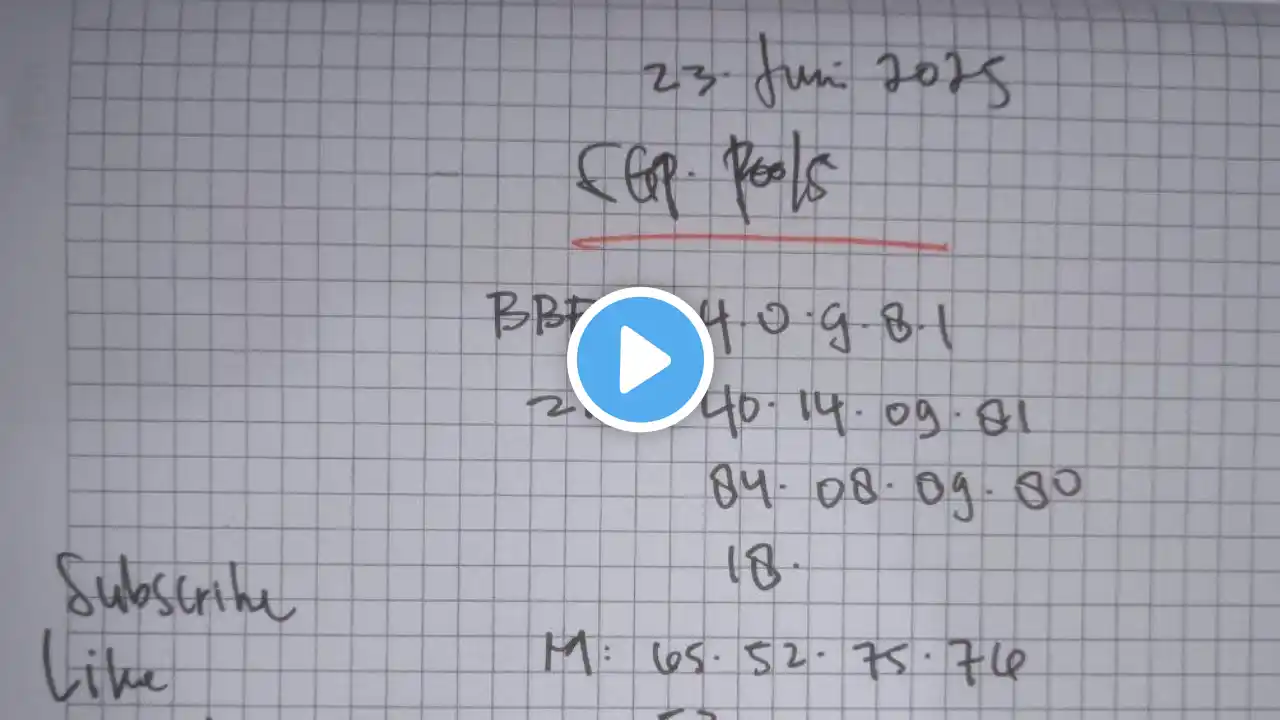 23. Juni 2025
EGP. Pools
BBF 4.0.9.8.1
2 40.14.09.81
84.08.09.80
18.
Subscribe
M: 65.52.75.76
Like